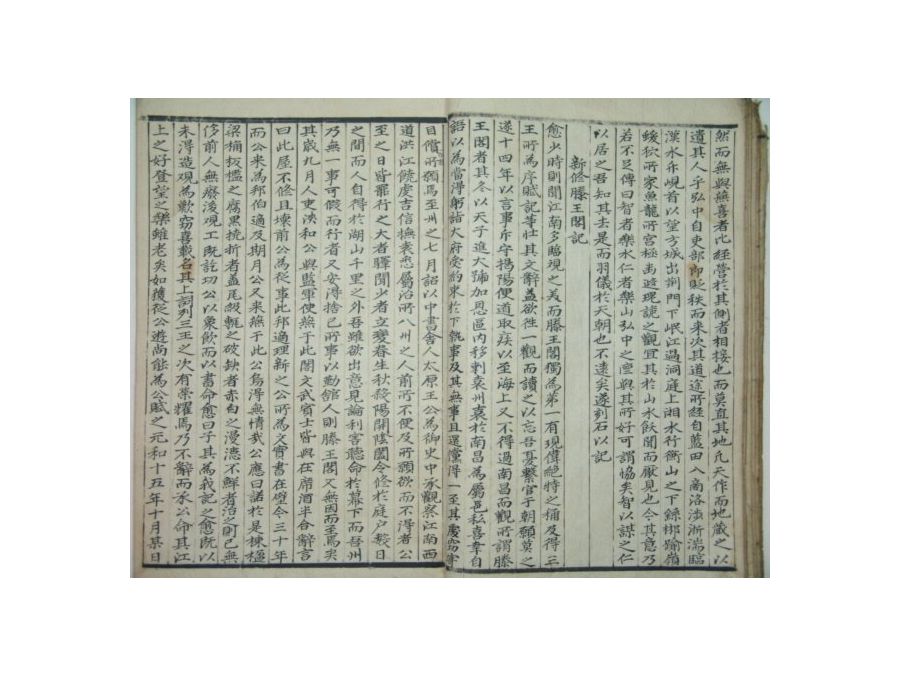 然而無與燕喜者比經營於其側者相接也而莫直其地凡天作而地藏之以
遺其人乎弘中自吏部郎貶秩而來次其道途所經自藍田入商洛涉淅湍臨
漢水升峴首以望方城出荊門下岷江過洞庭上湘水行衡山之下繇郴踰嶺
蝯狖所家魚龍所宮極幽遐瑰詭之觀宜其於山水飫聞而厭見也今其意乃
若不足傳曰智者樂水仁者樂山弘中之德與其所好可謂協矣智以謀之仁
以居之吾知其去是而羽儀於天朝也不遠矣遂列石以記
新修滕王閣記
愈少時則聞江南多臨觀之美而滕王閣獨為第一有瑰偉絕特之稱及得三
王所為序賦記等壯其文辭益欲往一觀而讀之以忘吾憂繫官于朝願莫之
遂十四年以言事斥守揭陽便道取疾以至海上又不得過南昌而觀所謂滕
王閣者其冬以天子進大號加恩區內移刺袁州袁於南昌為屬邑私喜幸自
語以為當得躬詣大府受約束於下執事及其無事且還儻得一至其處竊寄
目償所願焉至州之七月詔以中書舍人太原王公為御史中丞觀察江南西
道洪江饒虔吉信撫袁悉屬治所八州之人前所不便及所願欲而不得者公
至之日皆罷行之大者驛聞少者立變春生秋殺陽開陰闔令修於庭戶數日
之間而人自得於湖山千里之外吾雖欲出意見論利害聽命於幕下而吾州
乃無一事可假而行者又安得捨己所事以勤館人則滕王閣又無因而至焉矣
其歲九月人吏浹和公與監軍使燕于此閣文武賓士皆與在席酒半合辭言
曰此屋不修且壞前公為從事此邦適理新之公所為文實書在壁今三十年
而公來為邦伯適及期月公又來燕于此公烏得無情哉公應曰諾於是棟楹
梁桷板檻之腐黑撓折者蓋瓦級甎之破缺者赤白之漫漶不鮮者治之則已無
侈前人無廢後觀工既訖功公以衆飲而以書命愈曰子其為我記之愈既以
未得造觀為歎竊喜載名其上詞列三王之次有榮耀焉乃不辭而承公命其江
上之好登望之樂雖老矣如獲從公遊尚能為公賦之元和十五年十月某日